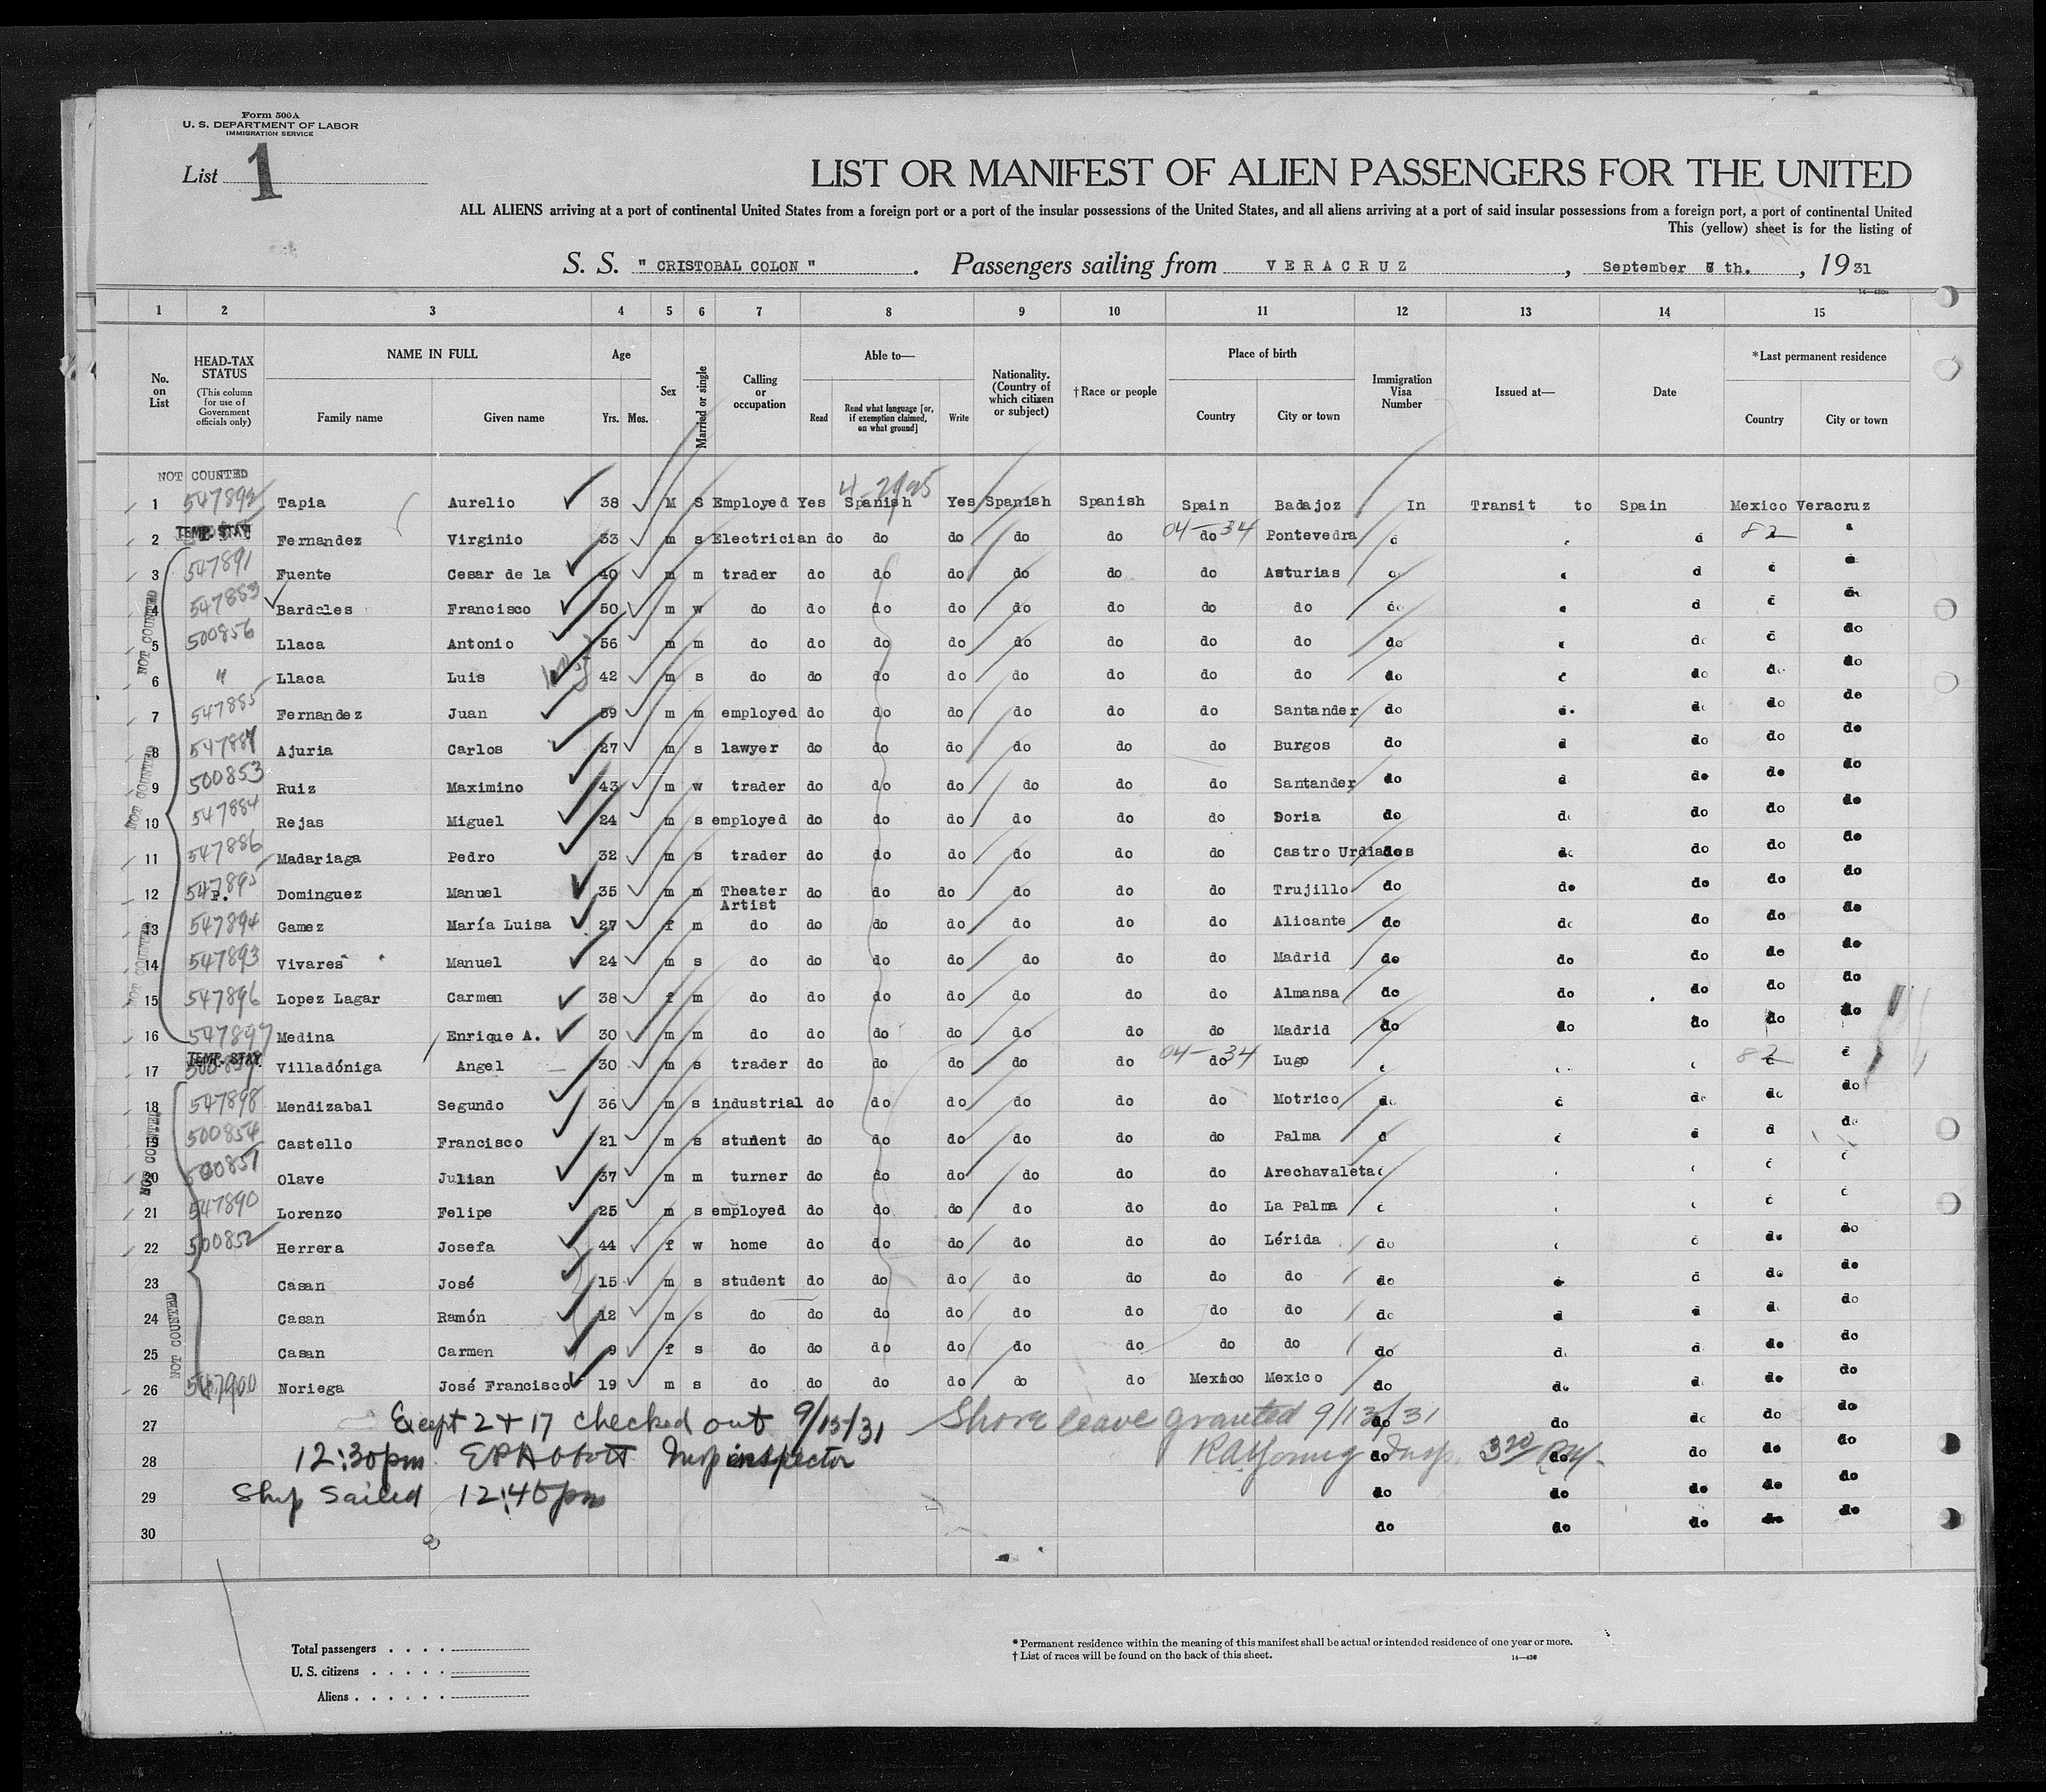 Form 500A
U. S. DEPARTMENT OF LABOR
IMMIGRATION SERVICE
List 1
LIST OR MANIFEST OF ALIEN PASSENGERS FOR THE UNITED
ALL ALIENS arriving at a port of continental United States from a foreign port or a port of the insular possessions of the United States, and all aliens arriving at a port of said insular possessions from a foreign port, a port of continental United
This (yellow) sheet is for the listing of
S. S. " CRISTOBAL COLON " . Passengers sailing from VERACRUZ , September th. , 1931
1 2 3 4 5 6 7 8 9 10 11 12 13 14 15
No. on List
HEAD-TAX STATUS (This column for use of Government officials only)
NAME IN FULL Family name Given name
Age Yrs. Mos.
Sex
Married or single
Calling or occupation
Able to— Read Read what language [or, if exemption claimed, on what ground] Write
Nationality. (Country of which citizen or subject)
†Race or people
Place of birth Country City or town
Immigration Visa Number
Issued at—
Date
*Last permanent residence Country City or town
NOT COUNTED
1 547892 Tapia Aurelio 38 M S Employed Yes Spanish Yes Spanish Spanish Spain Badajoz In Transit to Spain Mexico Veracruz
2 TEMP. STAY Fernandez Virginio 33 m s Electrician do do do do do 04-34 do Pontevedra 82
3 547891 Fuente Cesar de la 40 m m trader do do do do do do Asturias
4 547883 Bardales Francisco 50 m w do do do do do do do do do
5 500856 Llaca Antonio 56 m m do do do do do do do do do do
6 " Llaca Luis 42 m s do do do do do do do do do do do do
7 547885 Fernandez Juan 59 m m employed do do do do do do Santander do do do
8 547887 Ajuria Carlos 27 m s lawyer do do do do do do Burgos do do do do
9 500853 Ruiz Maximino 43 m w trader do do do do do do Santander do do do do
10 547884 Rejas Miguel 24 m s employed do do do do do do Doria do do do do
11 547886 Madariaga Pedro 32 m s trader do do do do do do Castro Urdiales do do do do
12 547895 P. Dominguez Manuel 35 m m Theater Artist do do do do do do Trujillo do do do do do
13 547894 Gamez María Luisa 27 f m do do do do do do do Alicante do do do do do
14 547893 Vivares Manuel 24 m s do do do do do do do Madrid do do do do do
15 547896 Lopez Lagar Carmen 38 f m do do do do do do do Almansa do do do do do
16 547897 Medina Enrique A. 30 m m do do do do do do do Madrid do do do do do
17 TEMP. STAY Villadóniga Angel 30 m s trader do do do do do 04-34 do Lugo 82
18 547898 Mendizabal Segundo 36 m s industrial do do do do do do Motrico do do do do
19 500854 Castello Francisco 21 m s student do do do do do do Palma do
20 500857 Olave Julian 37 m m turner do do do do do do Arechavaleta
21 547890 Lorenzo Felipe 25 m s employed do do do do do do La Palma
22 500852 Herrera Josefa 44 f w home do do do do do do Lérida do do do
23 Casan José 15 m s student do do do do do do do do do do
24 Casan Ramón 12 m s do do do do do do do do do do
25 Casan Carmen 9 f s do do do do do do do do do do do
26 547900 Noriega José Francisco 19 m s do do do do do do Mexico Mexico do do do do
NOT COUNTED
NOT COUNTED
NOT COUNTED
NOT COUNTED
NOT COUNTED
27 Except 2 & 17 checked out 9/13/31 Shore leave granted 9/13/31 do do do do
28 12:30pm EPAbbott Insp inspector RAYoung Insp. 3:20 PM. do do do do do
29 Ship Sailed 12:45pm do do do do do
30 do do do do do
Total passengers . . . .
U. S. citizens . . . . .
Aliens . . . . . .
* Permanent residence within the meaning of this manifest shall be actual or intended residence of one year or more.
† List of races will be found on the back of this sheet.